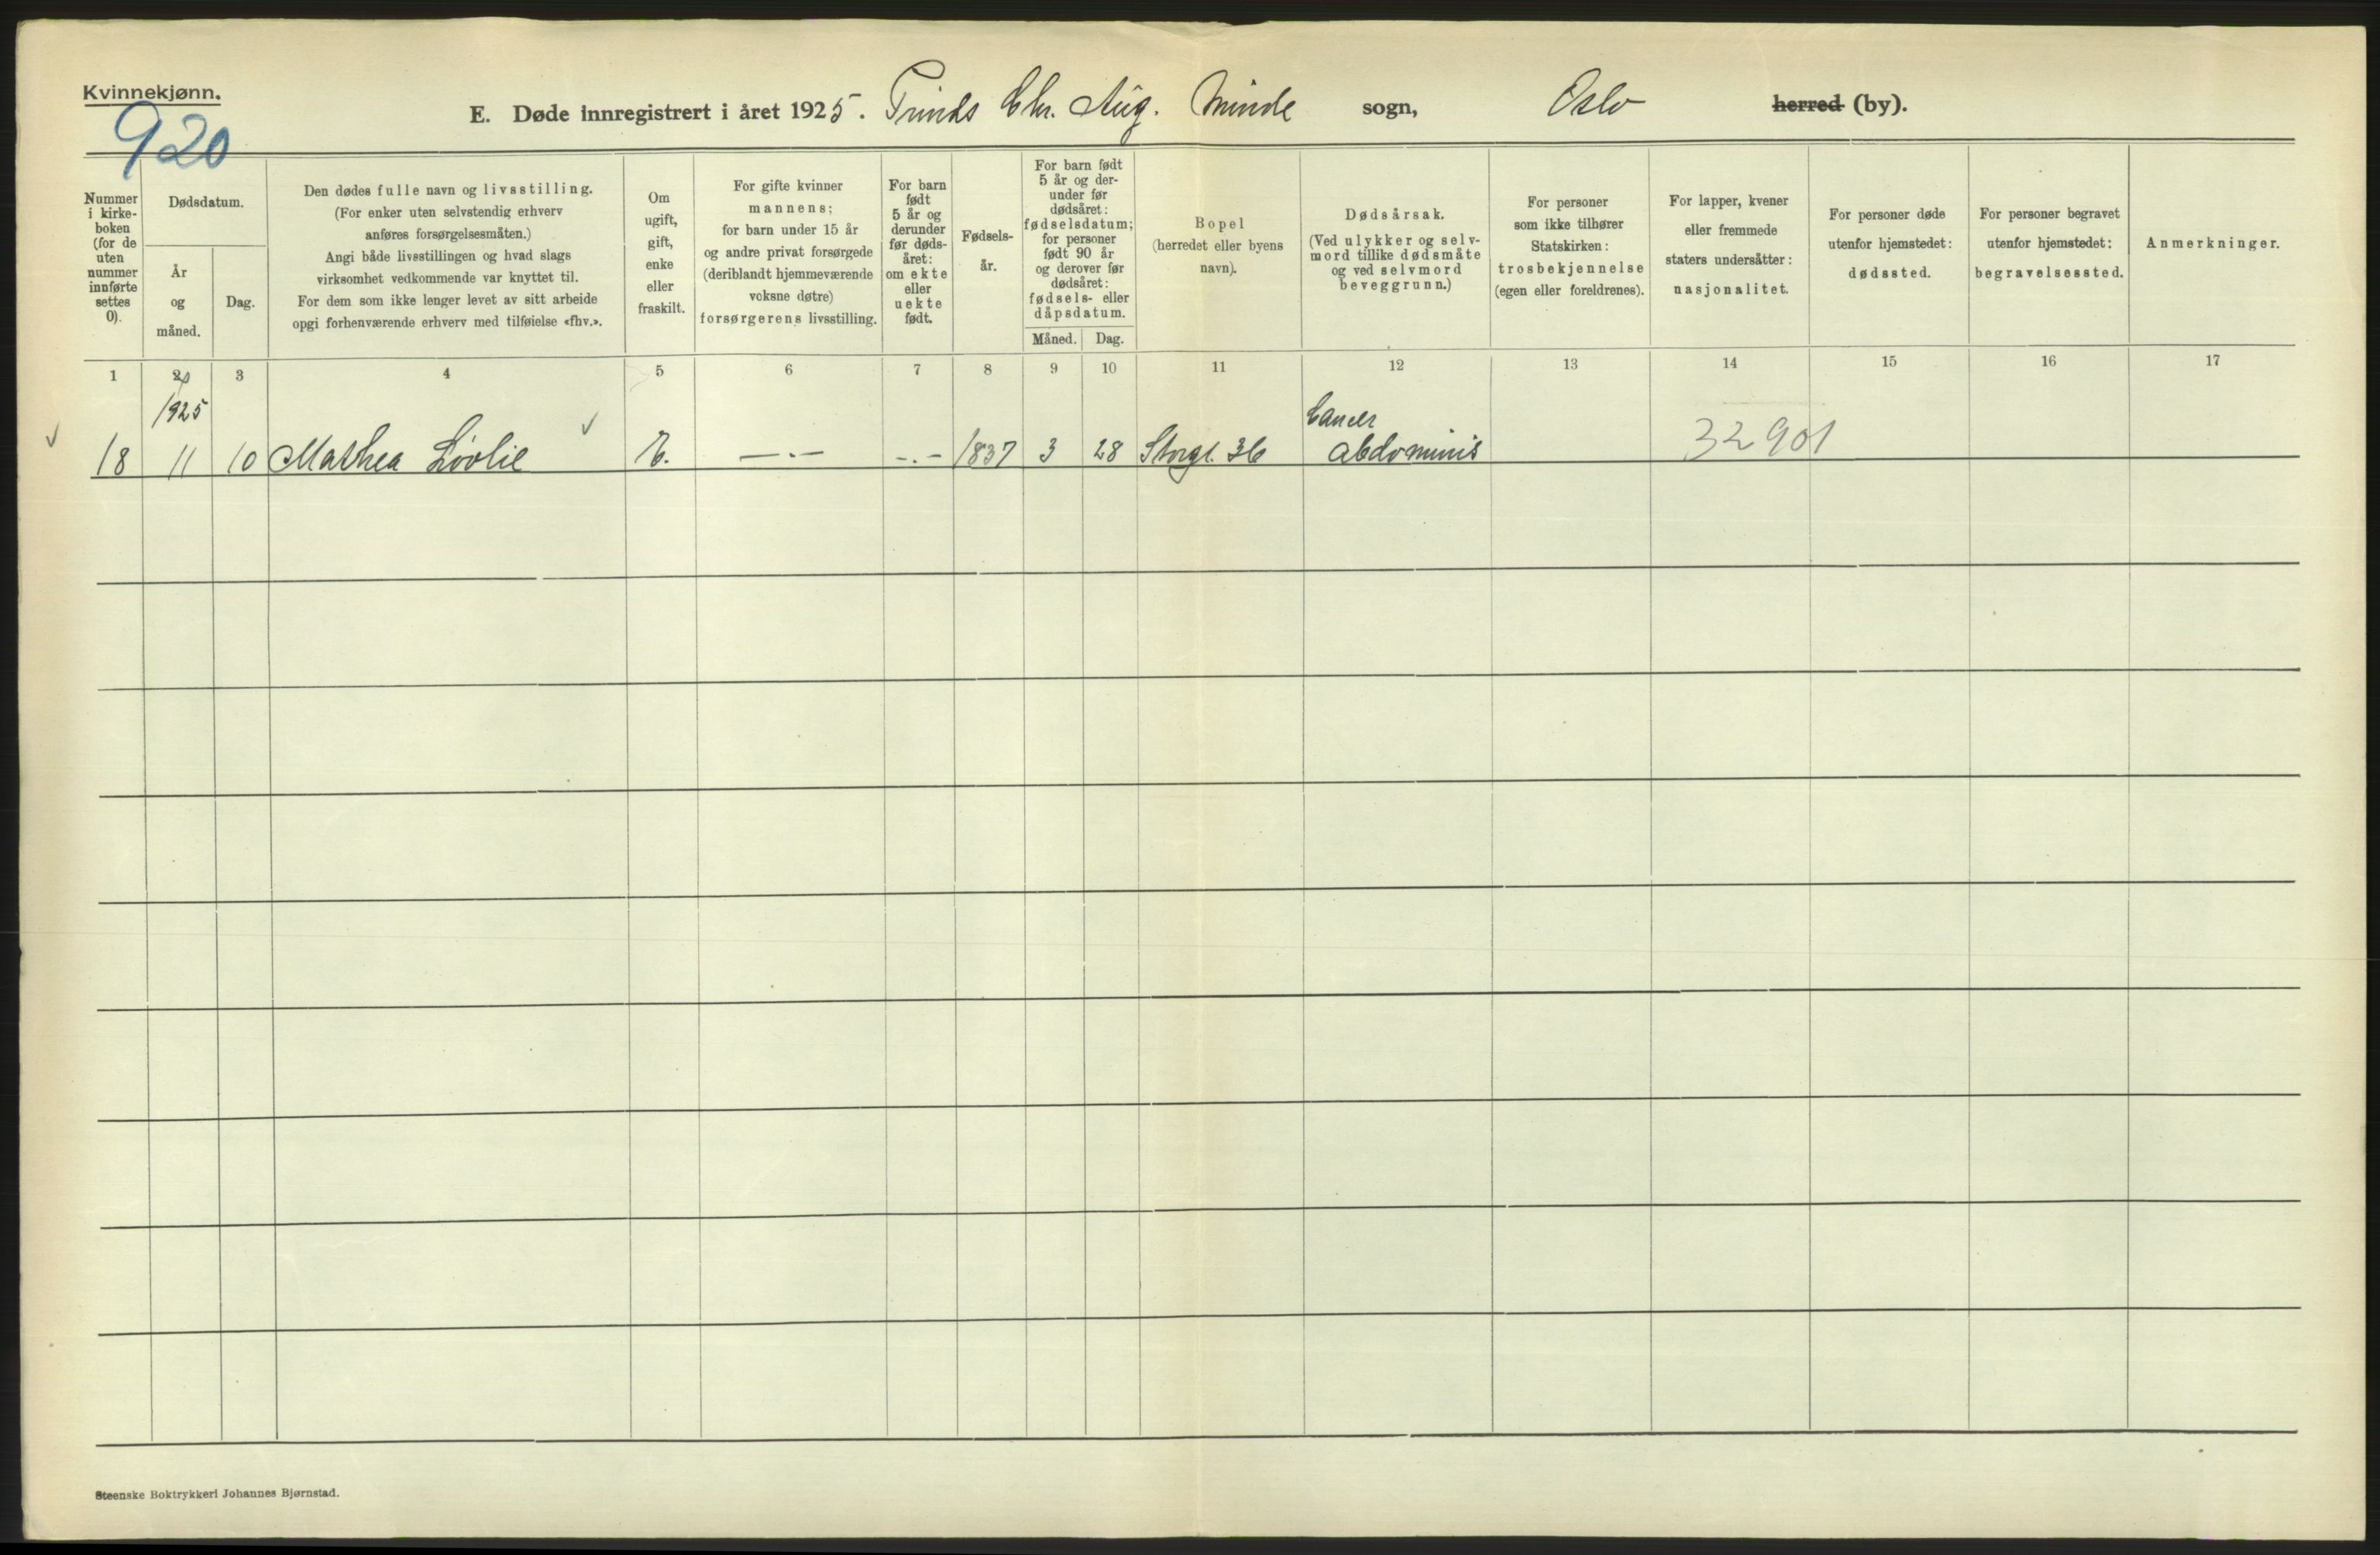 Kvinnekjønn.
920
E. Døde innregistrert i året 1925. Prinds Chr. Aug. Minde sogn, Oslo herred (by).
Nummer
i kirke-
boken
(for de
uten
nummer
innførte
settes
0).
Dødsdatum.
År
og
måned.
Dag.
Den dødes fulle navn og livsstilling.
(For enker uten selvstendig erhverv
anføres forsørgelsesmåten.)
Angi både livsstillingen og hvad slags
virksomhet vedkommende var knyttet til.
For dem som ikke lenger levet av sitt arbeide
opgi forhenværende erhverv med tilføielse «fhv.».
Om
ugift,
gift,
enke
eller
fraskilt.
For gifte kvinner
mannens;
for barn under 15 år
og andre privat forsørgede
(deriblandt hjemmeværende
voksne døtre)
forsørgerens livsstilling.
For barn
født
5 år og
derunder
før døds-
året:
om ekte
eller
uekte
født.
Fødsels-
år.
For barn født
5 år og der-
under før
dødsåret:
fødselsdatum;
for personer
født 90 år
og derover før
dødsåret:
fødsels- eller
dåpsdatum.
Måned.
Dag.
Bopel
(herredet eller byens
navn).
Dødsårsak.
(Ved ulykker og selv-
mord tillike dødsmåte
og ved selvmord
beveggrunn.)
For personer
som ikke tilhører
Statskirken:
trosbekjennelse
(egen eller foreldrenes).
For lapper, kvener
eller fremmede
staters undersåtter:
nasjonalitet.
For personer døde
utenfor hjemstedet:
dødssted.
For personer begravet
utenfor hjemstedet:
begravelsessted.
Anmerkninger.
1 2 3 4 5 6 7 8 9 10 11 12 13 14 15 16 17
1925
Cancer
18 11 10 Mathea Lövlie — . — -.- 1837 3 28 Storgt. 36 abdominis 32901
Steenske Boktrykkeri Johannes Bjørnstad.